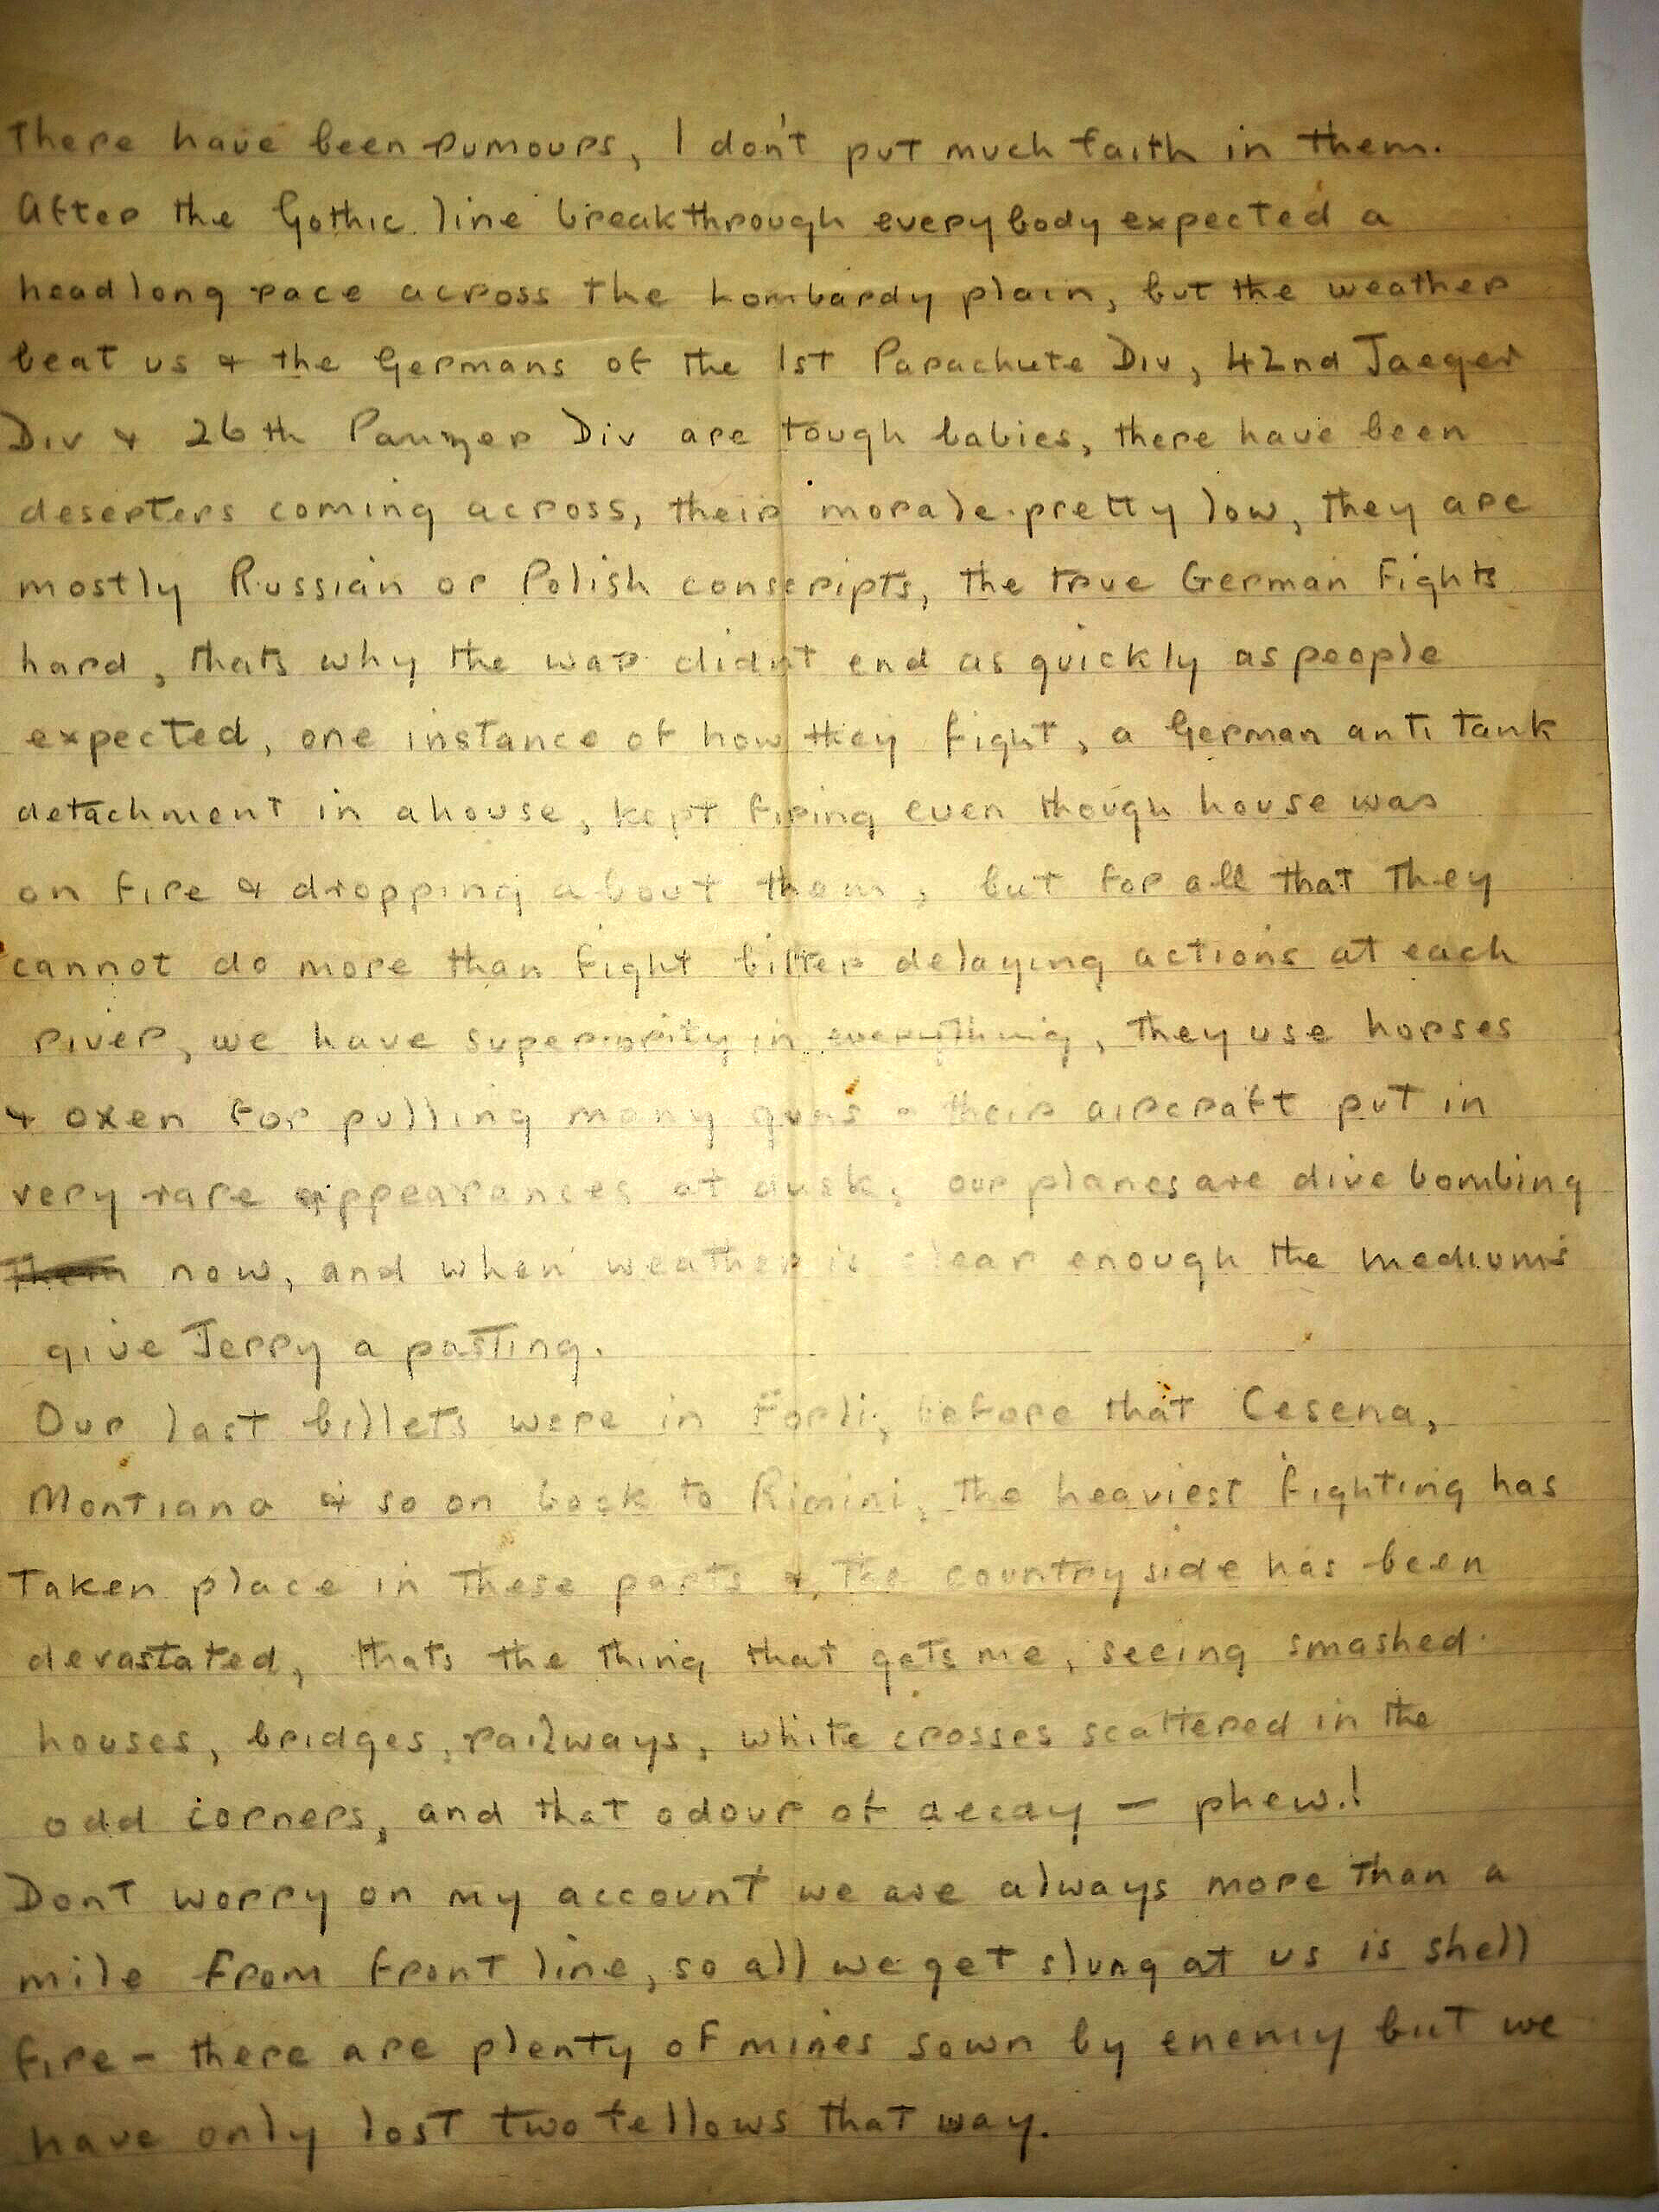 there have been rumours, I don't put much faith in them.
After the Gothic line breakthrough everybody expected a
headlong race across the Lombardy plain, but the weather
beat us & the Germans of the 1st Parachute Div, 42nd Jaeger
Div & 26th Panzer Div are tough babies, there have been
deserters coming across, their morale pretty low, they are
mostly Russian or Polish conscripts, the true German fights
hard, thats why the war didnt end as quickly as people
expected, one instance of how they fight, a German anti tank
detachment in a house, kept firing even though house was
on fire & dropping about them, but for all that they
cannot do more than fight bitter delaying actions at each
river, we have superiority in everything, they use horses
& oxen for pulling many guns & their aircraft put in
very rare appearances at dusk, our planes are dive bombing
now, and when weather is clear enough the mediums
give Jerry a pasting.
Our last billets were in Forli, before that Cesena,
Montiano & so on back to Rimini, the heaviest fighting has
taken place in these parts & the countryside has been
devastated, thats the thing that gets me, seeing smashed
houses, bridges, railways, white crosses scattered in the
odd corners, and that odour of decay - phew.!
Dont worry on my account we are always more than a
mile from front line, so all we get slung at us is shell
fire - there are plenty of mines sown by enemy but we
have only lost two fellows that way.